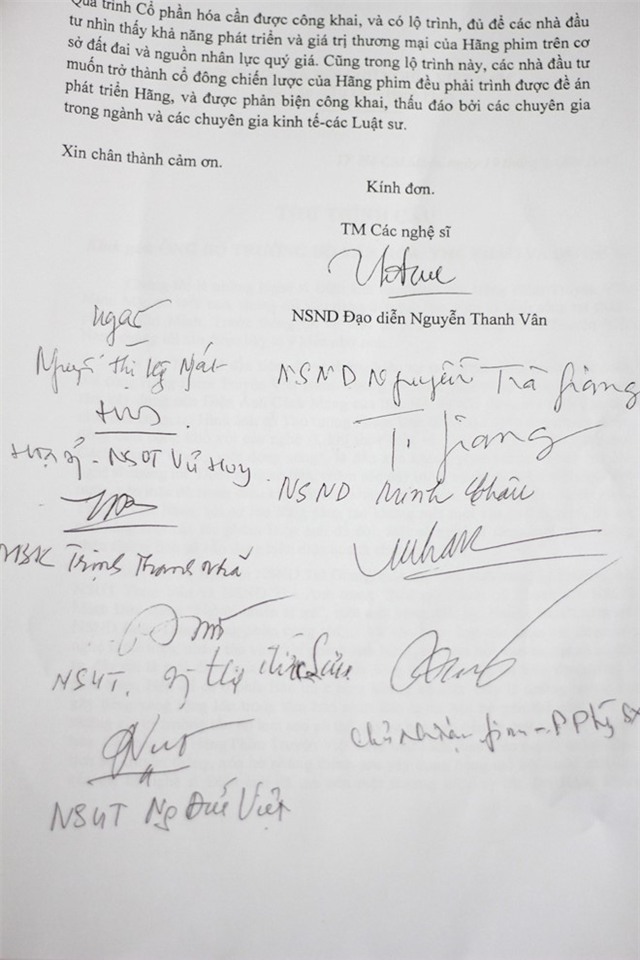 Quá trình Cổ phần hóa cần được công khai, và có lộ trình, đủ để các nhà đầu
tư nhìn thấy khả năng phát triển và giá trị thương mại của Hãng phim trên cơ
sở đất đai và nguồn nhân lực quý giá. Cũng trong lộ trình này, các nhà đầu tư
muốn trở thành cổ đông chiến lược của Hãng phim đều phải trình được đề án
phát triển Hãng, và được phản biện công khai, thấu đáo bởi các chuyên gia
trong ngành và các chuyên gia kinh tế-các Luật sư.
Xin chân thành cảm ơn.
Kính đơn.
TM Các nghệ sĩ
NSND Đạo diễn Nguyễn Thanh Vân
Ngát
Nguyễn Thị Hồng Ngát
NSND Nguyễn Trà Giang
T. Giang
Họa sỹ - NSƯT Vũ Huy
NSND Minh Châu
NBK Trịnh Thanh Nhã
NSƯT.
Chủ nhiệm fim - P Phòng SX
NSƯT Ng Đức Việt